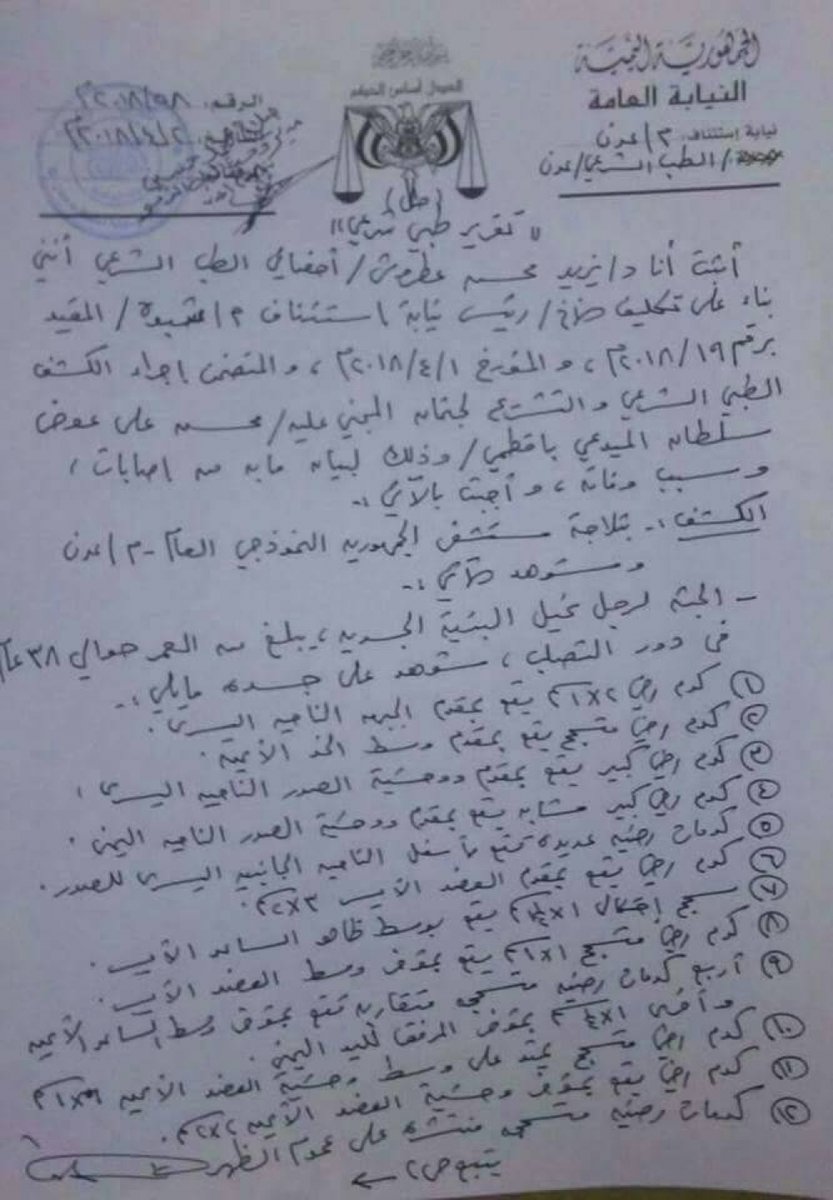 الجمهورية اليمنية
النيابة العامة
نيابة استئناف: م/عدن
/ الطب الشرعي/عدن
العدل أساس الحكم
الرقم: ٥٨/٢٠١٨م
٢٠١٨/٤/٢م
(ص١)
"تقرير طبي شرعي"
أثبت أنا د/ يزيد محسن عطروش/ أخصائي الطب الشرعي أنني
بناء على تكليف الأخ/ رئيس نيابة استئناف م/ شبوة / المقيد
برقم ٢٠١٨/١٩م، والمؤرخ ٢٠١٨/٤/١م، والمتضمن إجراء الكشف
الطبي الشرعي والتشريح لجثمان المجني عليه/ محسن علي عوض
سلطان الميدعي باقطمي/ وذلك لبيان مابه من إصابات،
وسبب وفاته، وأجبت بالآتي:-
الكشف:- بثلاجة مستشفى الجمهورية النموذجي العام - م/عدن
وشوهد الآتي:-
- الجثة لرجل نحيل البنية الجسدية، يبلغ من العمر حوالي ٣٨ عام
في دور التصلب، شوهد على جسده مايلي:-
① كدم رضي ٢×١سم يقع بمقدم الجبهه الناحيه اليسرى.
② كدم رضي متسحج يقع بمقدم وسط الخد الأيمن.
③ كدم رضي كبير يقع بمقدم ووحشية الصدر الناحيه اليسرى،
④ كدم رضي كبير مشابه يقع بمقدم ووحشية الصدر الناحيه اليمنى.
⑤ كدمات رضيه عديدة تقع بأسفل الناحيه الجانبيه اليسرى للصدر.
⑥ كدم رضي يقع بمقدم العضد الأيسر ٣×٢سم.
⑦ سحج إحتكاكي يقع بوسط ظاهر الساعد الأيسر.
⑧ كدم رضي متسحج ١×١سم يقع بمؤخر وسط العضد الأيسر.
⑨ أربع كدمات رضيه متسحجه متقاربه تقع بمؤخر وسط الساعد الأيمن
وأخرى بمؤخر المرفق لليد اليمنى.
⑩ كدم رضي متسحج يمتد على وسط وحشية العضد الأيمن
⑪ كدم رضي يقع بمؤخر وحشية العضد الأيمن ٢×٢سم.
⑫ كدمات رضيه متسحجه منتشره على عموم الظهر
يتبع ص٢ ←